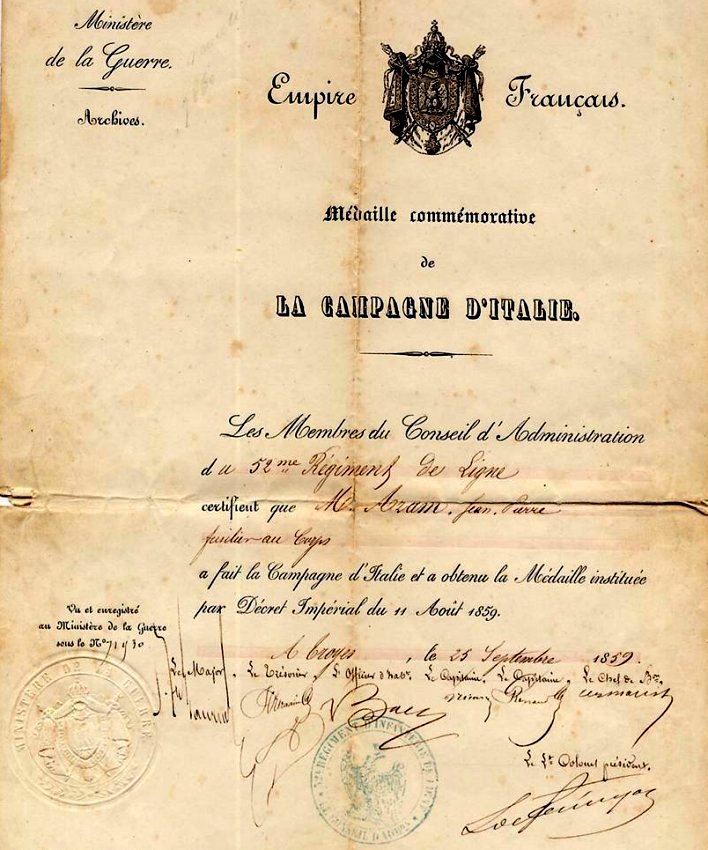 Ministère
de la Guerre.
Archives.
Empire Français.
Médaille commémorative
de
LA CAMPAGNE D'ITALIE.
Les Membres du Conseil d'Administration
du 52me Régiment de Ligne
certifient que Mr. Azam, Jean Pierre
fusilier au Corps
a fait la Campagne d'Italie et a obtenu la Médaille instituée
par Décret Impérial du 11 Août 1859.
Vu et enregistré
au Ministère de la Guerre
sous le No
A Troyes, le 25 Septembre 1859.
Le Major Le Trésorier, L'Officier d'habt. Le Capitaine, Le Capitaine, Le Chef de Bon.
Le Lt. Colonel président.
MINISTÈRE DE LA GUERRE
RÉGIMENT D'INFANTERIE DE LIGNE
CONSEIL D'ADMON